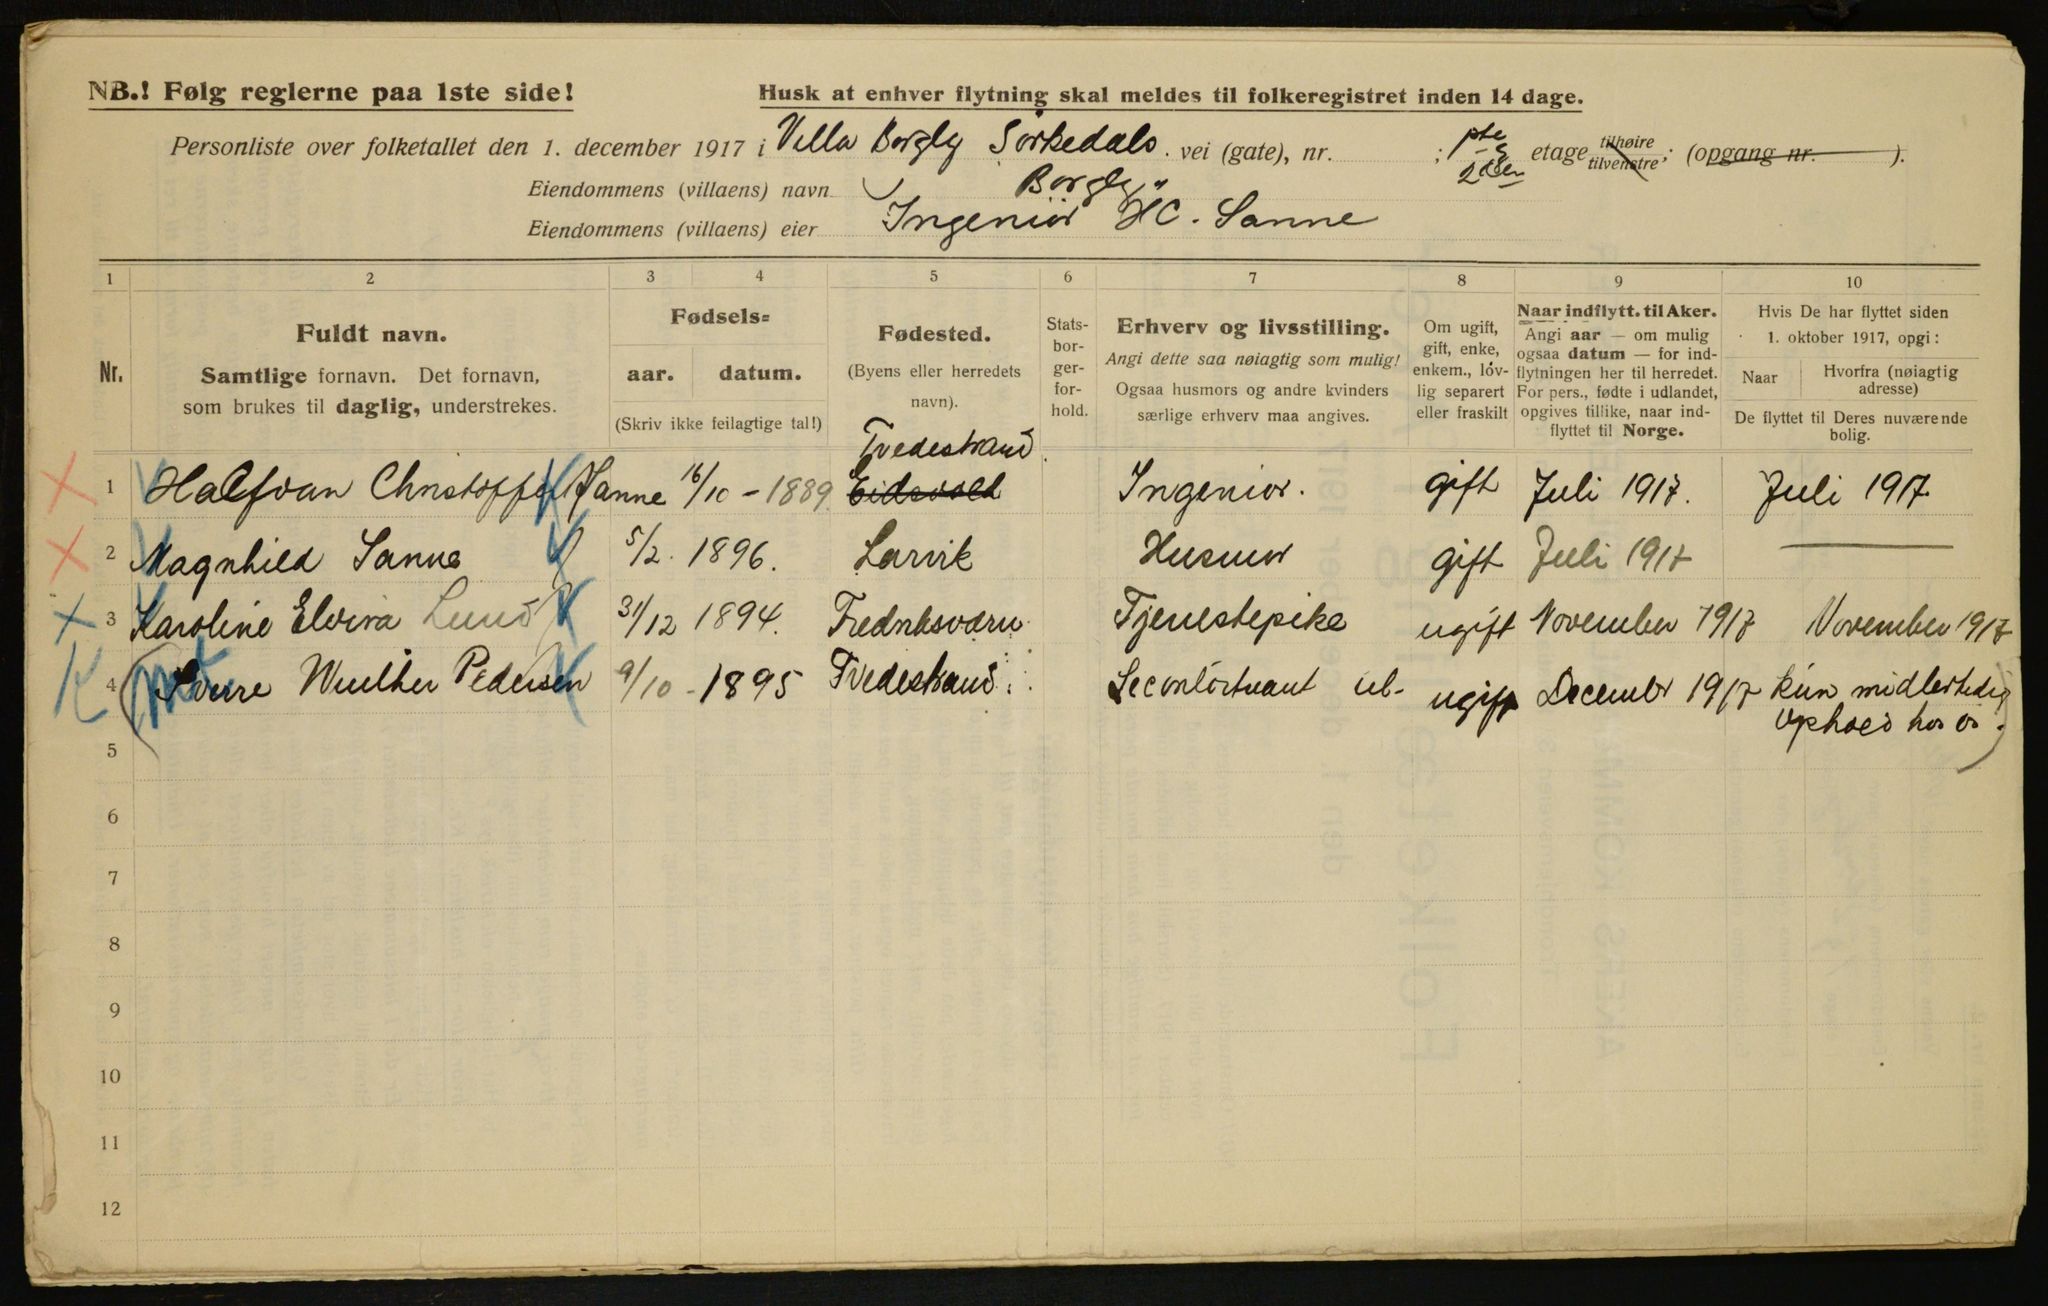 NB.! Følg reglerne paa 1ste side!
Husk at enhver flytning skal meldes til folkeregistret inden 14 dage.
Personliste over folketallet den 1. december 1917 i Villa Borgly Sörkedals. vei (gate), nr. ; 1ste og 2den etage tilhøire tilvenstre; (opgang nr. ).
Eiendommens (villaens) navn Borgly
Eiendommens (villaens) eier Ingeniör H.C. Sanne
1 2 3 4 5 6 7 8 9 10
Nr.
Fuldt navn.
Samtlige fornavn. Det fornavn,
som brukes til daglig, understrekes.
Fødsels=
aar. datum.
(Skriv ikke feilagtige tal!)
Fødested.
(Byens eller herredets
navn).
Stats-
bor-
ger-
for-
hold.
Erhverv og livsstilling.
Angi dette saa nøiagtig som mulig!
Ogsaa husmors og andre kvinders
særlige erhverv maa angives.
Om ugift,
gift, enke,
enkem., løv-
lig separert
eller fraskilt
Naar indflytt. til Aker.
Angi aar — om mulig
ogsaa datum — for ind-
flytningen her til herredet.
For pers., fødte i udlandet,
opgives tillike, naar ind-
flyttet til Norge.
Hvis De har flyttet siden
1. oktober 1917, opgi:
Naar
Hvorfra (nøiagtig
adresse)
De flyttet til Deres nuværende
bolig.
Tvedestrand
1 Halfvan Christoffer Sanne 16/10 - 1889 Eidsvold Ingeniör. gift Juli 1917. Juli 1917.
2 Magnhild Sanne 5/2. 1896. Larvik Husmor gift Juli 1917
3 Karoline Elvira Lund 31/12 1894. Fredriksværn Tjenestepike ugift November 1917 November 1917
4 (Sverre Wulther Pedersen 9/10 - 1895 Tvedestrand. Seconlöitnant ugift December 1917 kun midlertidig
ophold hos os.)
5
6
7
8
9
10
11
12